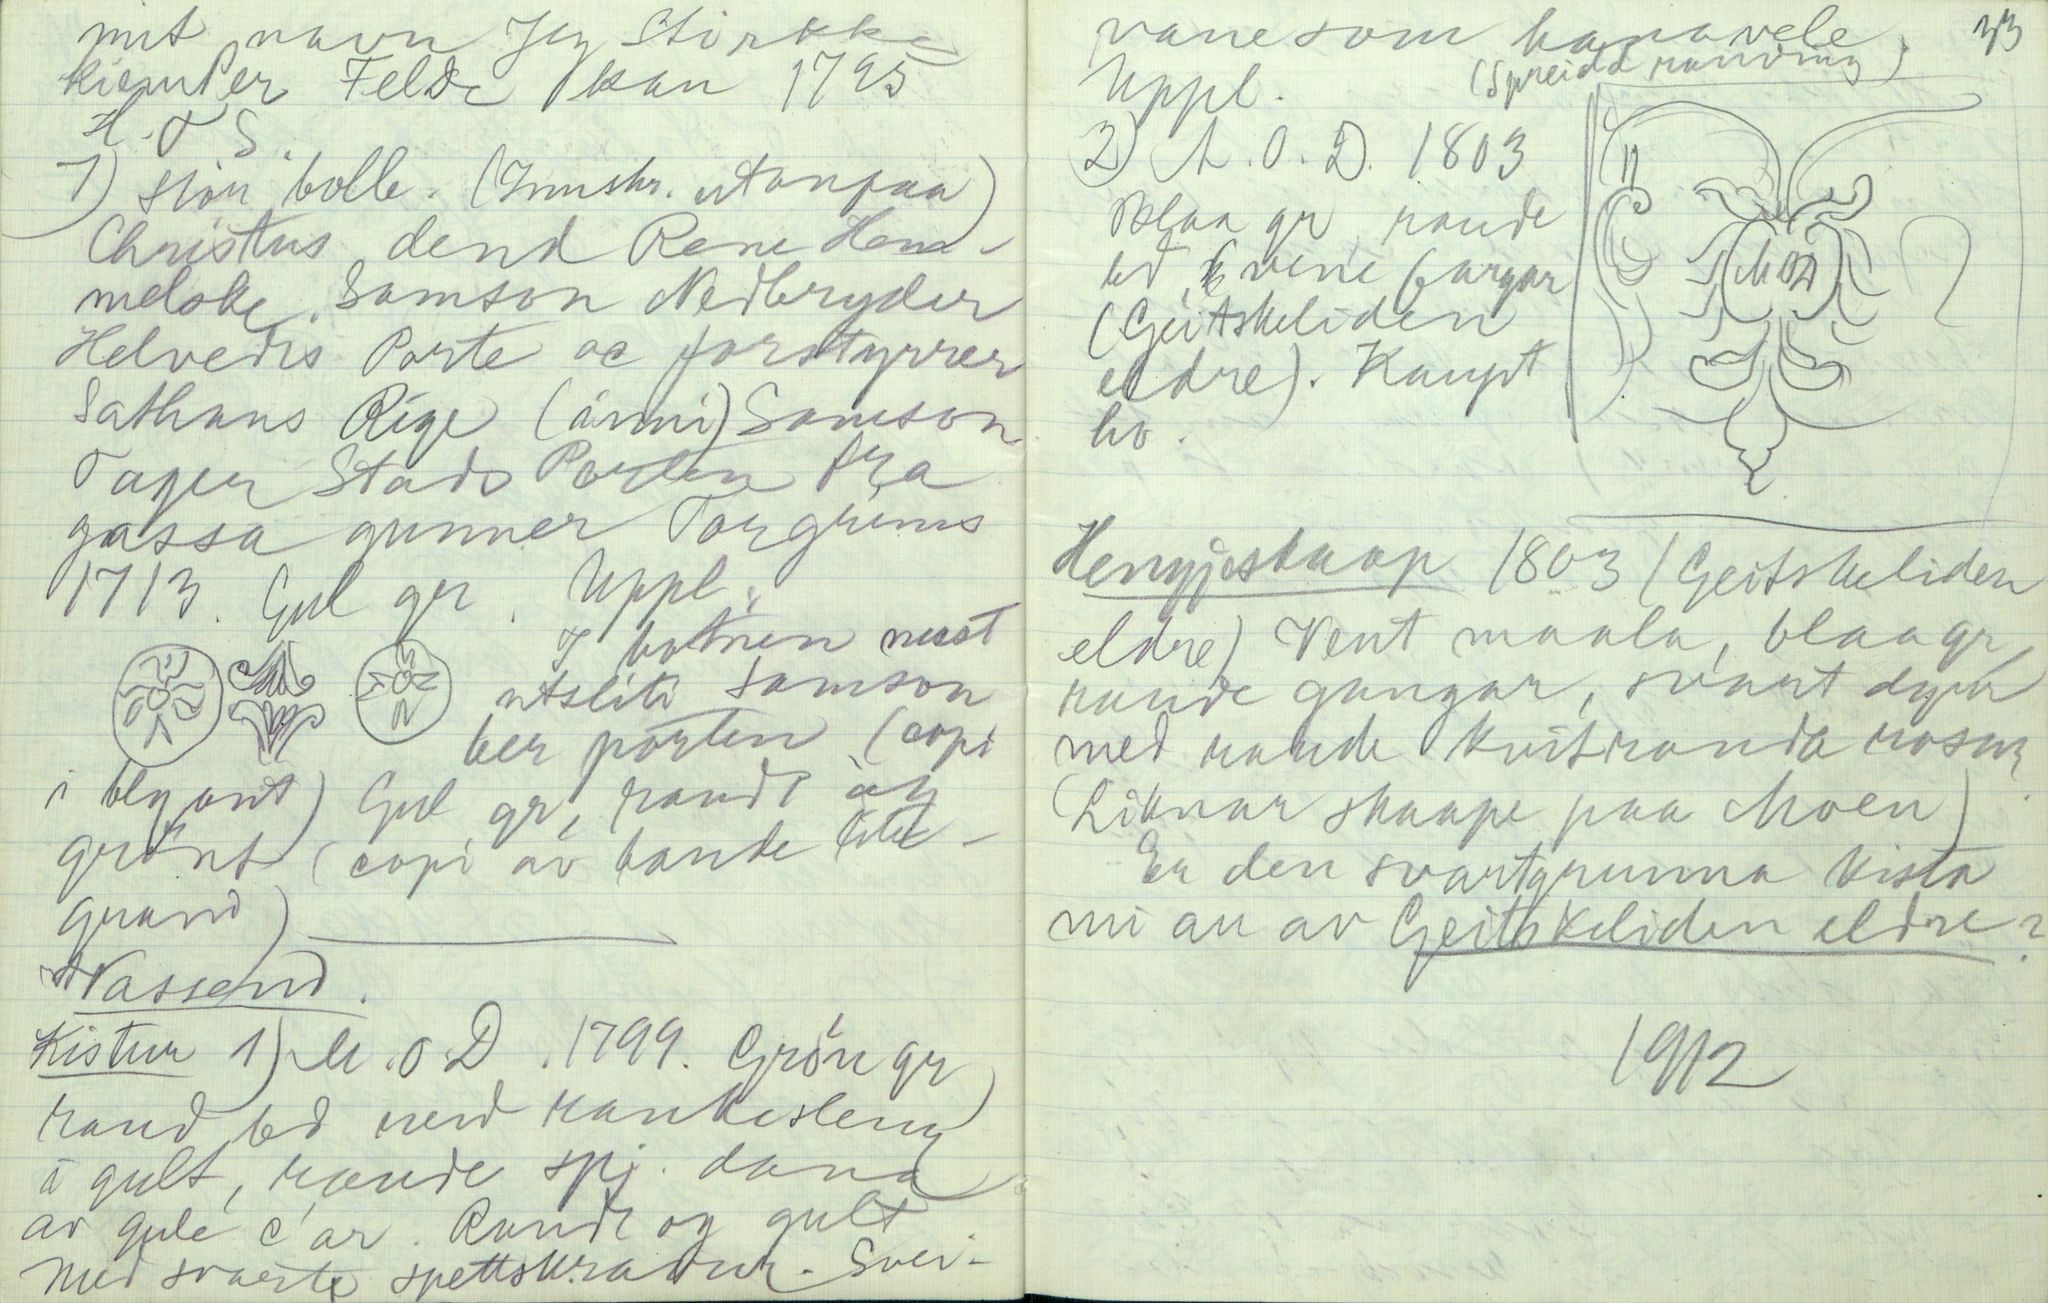 mit navn Jeg Stirkke
kiemPer Felde kan 1795
H. T S.
1) stor bolle. (Innskr. utanpaa)
Christus dend Rene Hem-
melske Samson Nedbryder
Helvedis Porte oc forstyrrer
Sathans Rige (änni) Samson
Tager Stads Porten fra
gassa gunner Torgrims
1713. Gul gr. Uppl.
I botnen mest
utsliti Samson
ber porten (copi
i blyant) Gul gr, raudt og
grönt (copi av bande
grand)
Nassend.
Kistur 1) M.O.D. 1799. Grön gr
raud bd med rankesleng
i gult, raude spj. dana
av gule c'ar. Raudt og gult
med svarte spettskradur. Svei-
33
vane som hanavele.
Uppl. (Spreidd randing)
2) M.O.D. 1803
Blaa gr raude
bd, vene fargar
(Geitskeliden
eldre). Kaupt
ho.
MOD
Hengjeskaap 1803 (Geitskeliden
eldre) Vent maala, blaagr,
raude gangar, svart dyr
med raude kvitranda rosur
(Liknar skaape paa Moen)
Er den svartgrunna kista
mi au av Geitskeliden eldre?
1912